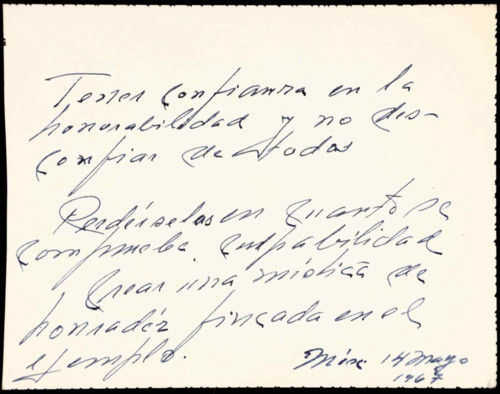 Tener confianza en la
honorabilidad y no des-
confiar de todos
Perdérselas en cuanto se
comprueba culpabilidad
Crear una mística de
honradéz fincada en el
ejemplo.
14 Mayo
1967